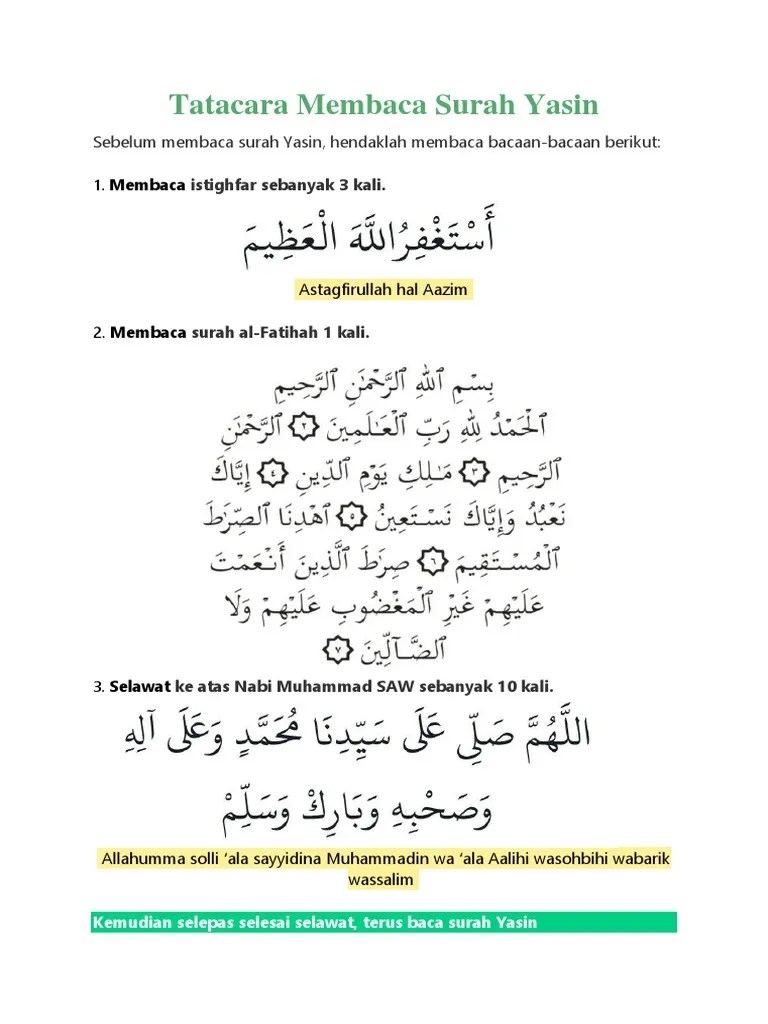 Tatacara Membaca Surah Yasin
Sebelum membaca surah Yasin, hendaklah membaca bacaan-bacaan berikut:
1. Membaca istighfar sebanyak 3 kali.
أَسْتَغْفِرُاللَّهَ الْعَظِيمَ
Astagfirullah hal Aazim
2. Membaca surah al-Fatihah 1 kali.
بِسْمِ ٱللَّهِ ٱلرَّحْمَٰنِ ٱلرَّحِيمِ
ٱلْحَمْدُ لِلَّهِ رَبِّ ٱلْعَـٰلَمِينَ ۝٢ ٱلرَّحْمَٰنِ
ٱلرَّحِيمِ ۝٣ مَـٰلِكِ يَوْمِ ٱلدِّينِ ۝٤ إِيَّاكَ
نَعْبُدُ وَإِيَّاكَ نَسْتَعِينُ ۝٥ ٱهْدِنَا ٱلصِّرَٰطَ
ٱلْمُسْتَقِيمَ ۝٦ صِرَٰطَ ٱلَّذِينَ أَنْعَمْتَ
عَلَيْهِمْ غَيْرِ ٱلْمَغْضُوبِ عَلَيْهِمْ وَلَا
ٱلضَّآلِّينَ ۝٧
3. Selawat ke atas Nabi Muhammad SAW sebanyak 10 kali.
اللَّهُمَّ صَلِّى عَلَى سَيِّدِنَا مُحَمَّدٍ وَعَلَى آلِهِ
وَصَحْبِهِ وَبَارِكْ وَسَلِّمْ
Allahumma solli ‘ala sayyidina Muhammadin wa ‘ala Aalihi wasohbihi wabarik
wassalim
Kemudian selepas selesai selawat, terus baca surah Yasin